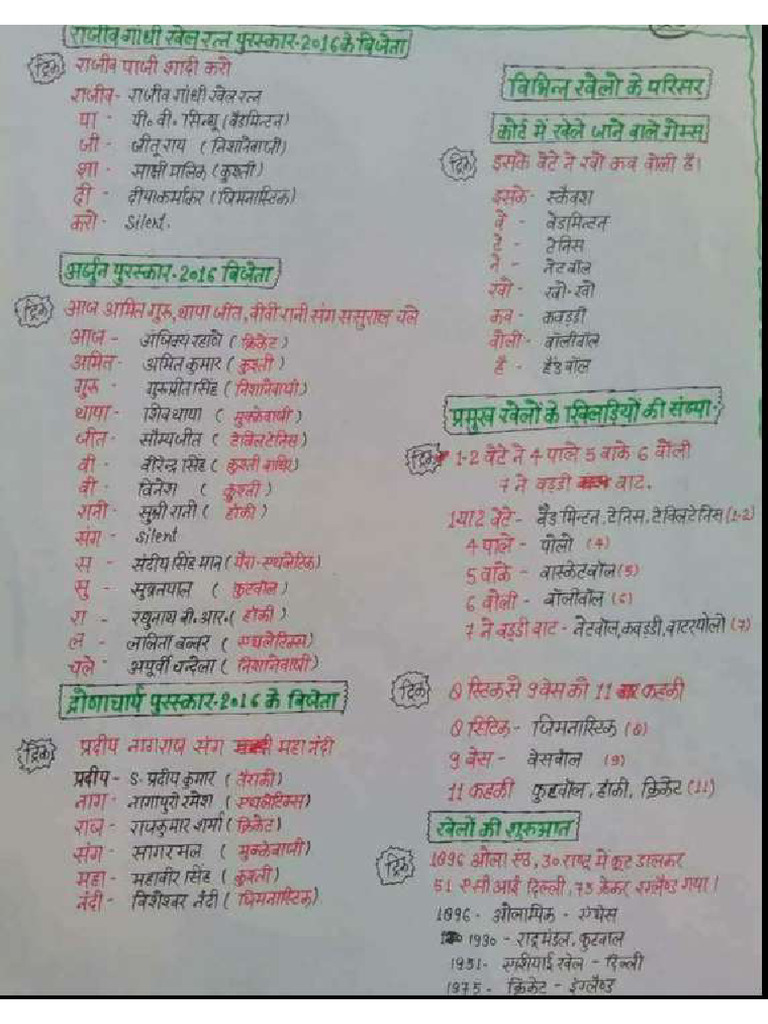 राजीव गांधी खेल रत्न पुरस्कार-2016 के विजेता
ट्रिक राजीव पाजी शादी करो
राजीव- राजीव गांधी खेल रत्न
पा - पी. वी. सिन्धू (बैडमिन्टन)
जी - जीतू राय (निशानेबाजी)
शा - साक्षी मालिक (कुश्ती)
दी - दीपा कर्माकर (जिमनास्टिक)
करो- Silent.
अर्जुन पुरस्कार-2016 विजेता
ट्रिक आज अमित गुरू, थापा जीत, वीवी रानी संग ससुराल चले
आज - अंजिक्य रहाणे (क्रिकेट)
अमित- अमित कुमार (कुश्ती)
गुरू - गुरूप्रीत सिंह (निशानेबाजी)
थापा - शिव थापा (मुक्केबाजी)
जीत - सौम्यजीत (टेबिल टेनिस)
वी - वीरेन्द्र सिंह (कुश्ती बाधिर)
वी - विनेश (कुश्ती)
रानी - सुश्री रानी (हॉकी)
संग - Silent
स - संदीप सिंह मान (पैरा-एथलेटिक)
सु - सुब्रतपाल (फुटवॉल)
रा - रघुनाथ वी. आर. (हॉकी)
ल - ललिता बब्बर (एथलेटिक्स)
चले - अपूर्वी चन्देला (निशानेबाजी)
द्रोणाचार्य पुरस्कार-2016 के विजेता
ट्रिक प्रदीप नागराज संग महा नंदी
प्रदीप - S. प्रदीप कुमार (तैराकी)
नाग - नागापुरी रमेश (एथलेटिक्स)
राज - राजकुमार शर्मा (क्रिकेट)
संग - सागरमल (मुक्केबाजी)
महा - महावीर सिंह (कुश्ती)
नंदी - विशेश्वर नंदी (जिमनास्टिक)
विभिन्न खेलो के परिसर
कोर्ट में खेले जाने वाले गेम्स
ट्रिक इसके वेटे ने खो कव वोली है।
इसके- स्कैवश
वे - वेडमिन्टन
टे - टेनिस
ने - नेटवॉल
खो - खो-खो
कव - कवड्डी
वोली - वॉलीवॉल
है - हैंडवॉल
प्रमुख खेलों के खिलाड़ियों की संख्या-
ट्रिक 1-2 वेटे ने 4 पाले 5 वाके 6 वोली
7 ने वड्डी वाट.
1 या 2 वेटे- वैडमिन्टन, टेनिस, टेविल टेनिस (1-2)
4 पाले - पोलो (4)
5 वाके - वास्केटवॉल (5)
6 वोली - वॉलीवॉल (6)
7 ने वड्डी वाट - नेटवॉल, कवड्डी, वाटरपोलो (7)
ट्रिक 8 स्टिक से 9 वेस को 11 कहकी
8 स्टिक - जिमनास्टिक (8)
9 वेस - वेसवॉल (9)
11 कहकी फुटवॉल, हॉकी, क्रिकेट (11)
खेलों की शुरुआत
ट्रिक 1896 ओला एंड, 30 राष्ट्र में फूट डालकर
51 एसी आई दिल्ली, 75 क्रेकर इंग्लैण्ड गया।
1896 - ओलम्पिक - एथेंस
1930 - राष्ट्रमंडल, फुटवाल
1951- एशीयाई खेल - दिल्ली
1975 - क्रिकेट - इंग्लैण्ड